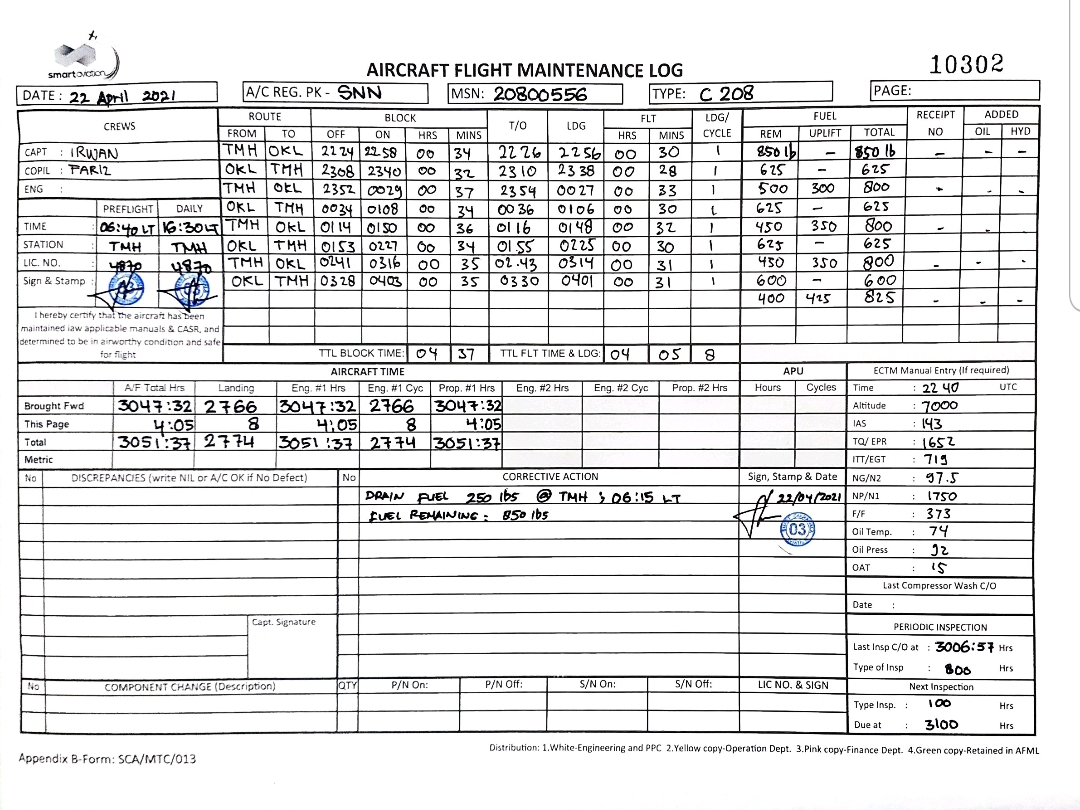 smartaviation
AIRCRAFT FLIGHT MAINTENANCE LOG
10302
DATE : 22 April 2021 A/C REG. PK - SNN MSN: 20800556 TYPE: C 208 PAGE:
CREWS ROUTE BLOCK T/O LDG FLT LDG/ CYCLE FUEL RECEIPT NO ADDED
FROM TO OFF ON HRS MINS HRS MINS REM UPLIFT TOTAL OIL HYD
CAPT : IRWAN TMH OKL 2224 2258 00 34 2226 2256 00 30 1 850 lb – 850 lb – – –
COPIL : FARIZ OKL TMH 2308 2340 00 32 2310 2338 00 28 1 625 – 625
ENG : TMH OKL 2352 0029 00 37 2354 0027 00 33 1 500 300 800 - - -
PREFLIGHT DAILY OKL TMH 0034 0108 00 34 0036 0106 00 30 1 625 – 625
TIME : 06:40 LT 16:30 LT TMH OKL 0114 0150 00 36 0116 0148 00 32 1 450 350 800 - - -
STATION : TMH TMH OKL TMH 0153 0227 00 34 0155 0225 00 30 1 625 – 625
LIC. NO. : 4870 4870 TMH OKL 0241 0316 00 35 02.43 0314 00 31 1 450 350 800 - - -
Sign & Stamp : OKL TMH 0328 0403 00 35 0330 0401 00 31 1 600 – 600
400 425 825 - - -
I hereby certify that the aircraft has been
maintained iaw applicable manuals & CASR, and
determined to be in airworthy condition and safe
for flight
TTL BLOCK TIME: 04 37 TTL FLT TIME & LDG: 04 05 8
AIRCRAFT TIME APU ECTM Manual Entry (If required)
A/F Total Hrs Landing Eng. #1 Hrs Eng. #1 Cyc Prop. #1 Hrs Eng. #2 Hrs Eng. #2 Cyc Prop. #2 Hrs Hours Cycles Time : 22 40 UTC
Brought Fwd 3047:32 2766 3047:32 2766 3047:32 Altitude : 7000
This Page 4:05 8 4:05 8 4:05 IAS : 143
Total 3051:37 2774 3051:37 2774 3051:37 TQ/ EPR : 1652
Metric ITT/EGT : 719
No DISCREPANCIES (write NIL or A/C OK if No Defect) No CORRECTIVE ACTION Sign, Stamp & Date NG/N2 : 97.5
DRAIN FUEL 250 lbs @ TMH ; 06:15 LT 22/04/2021 NP/N1 : 1750
FUEL REMAINING : 850 lbs F/F : 373
03 Oil Temp. : 74
Oil Press : 92
OAT : 15
Last Compressor Wash C/O
Date :
Capt. Signature PERIODIC INSPECTION
Last Insp C/O at : 3006:57 Hrs
Type of Insp : 800 Hrs
No COMPONENT CHANGE (Description) QTY P/N On: P/N Off: S/N On: S/N Off: LIC NO. & SIGN Next Inspection
Type Insp. : 100 Hrs
Due at : 3100 Hrs
Distribution: 1.White-Engineering and PPC 2.Yellow copy-Operation Dept. 3.Pink copy-Finance Dept. 4.Green copy-Retained in AFML
Appendix B-Form: SCA/MTC/013